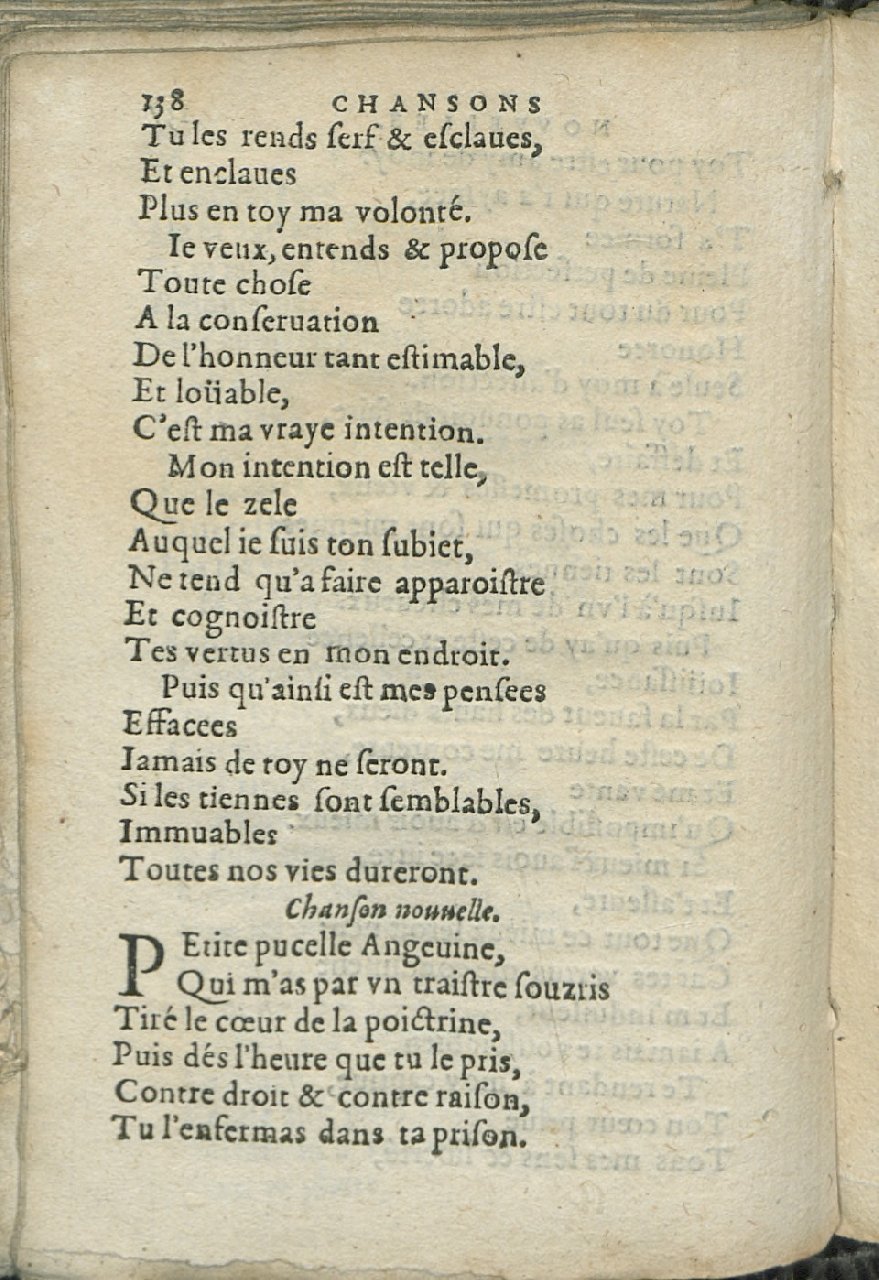 138 CHANSONS
Tu les rends ſerf & eſclaues,
Et enclaues
Plus en toy ma volonté.
Ie veux, entends & propoſe
Toute choſe
A la conſeruation
De l'honneur tant eſtimable,
Et loüable,
C'eſt ma vraye intention.
Mon intention eſt telle,
Que le zele
Auquel ie ſuis ton ſubiet,
Ne tend qu'a faire apparoiſtre
Et cognoiſtre
Tes vertus en mon endroit.
Puis qu'ainſi eſt mes penſees
Effacees
Iamais de toy ne ſeront.
Si les tiennes ſont ſemblables,
Immuables
Toutes nos vies dureront.
Chanſon nouuelle.
PEtite pucelle Angeuine,
Qui m'as par vn traiſtre ſouzris
Tiré le cœur de la poictrine,
Puis dés l'heure que tu le pris,
Contre droit & contre raiſon,
Tu l'enfermas dans ta priſon.